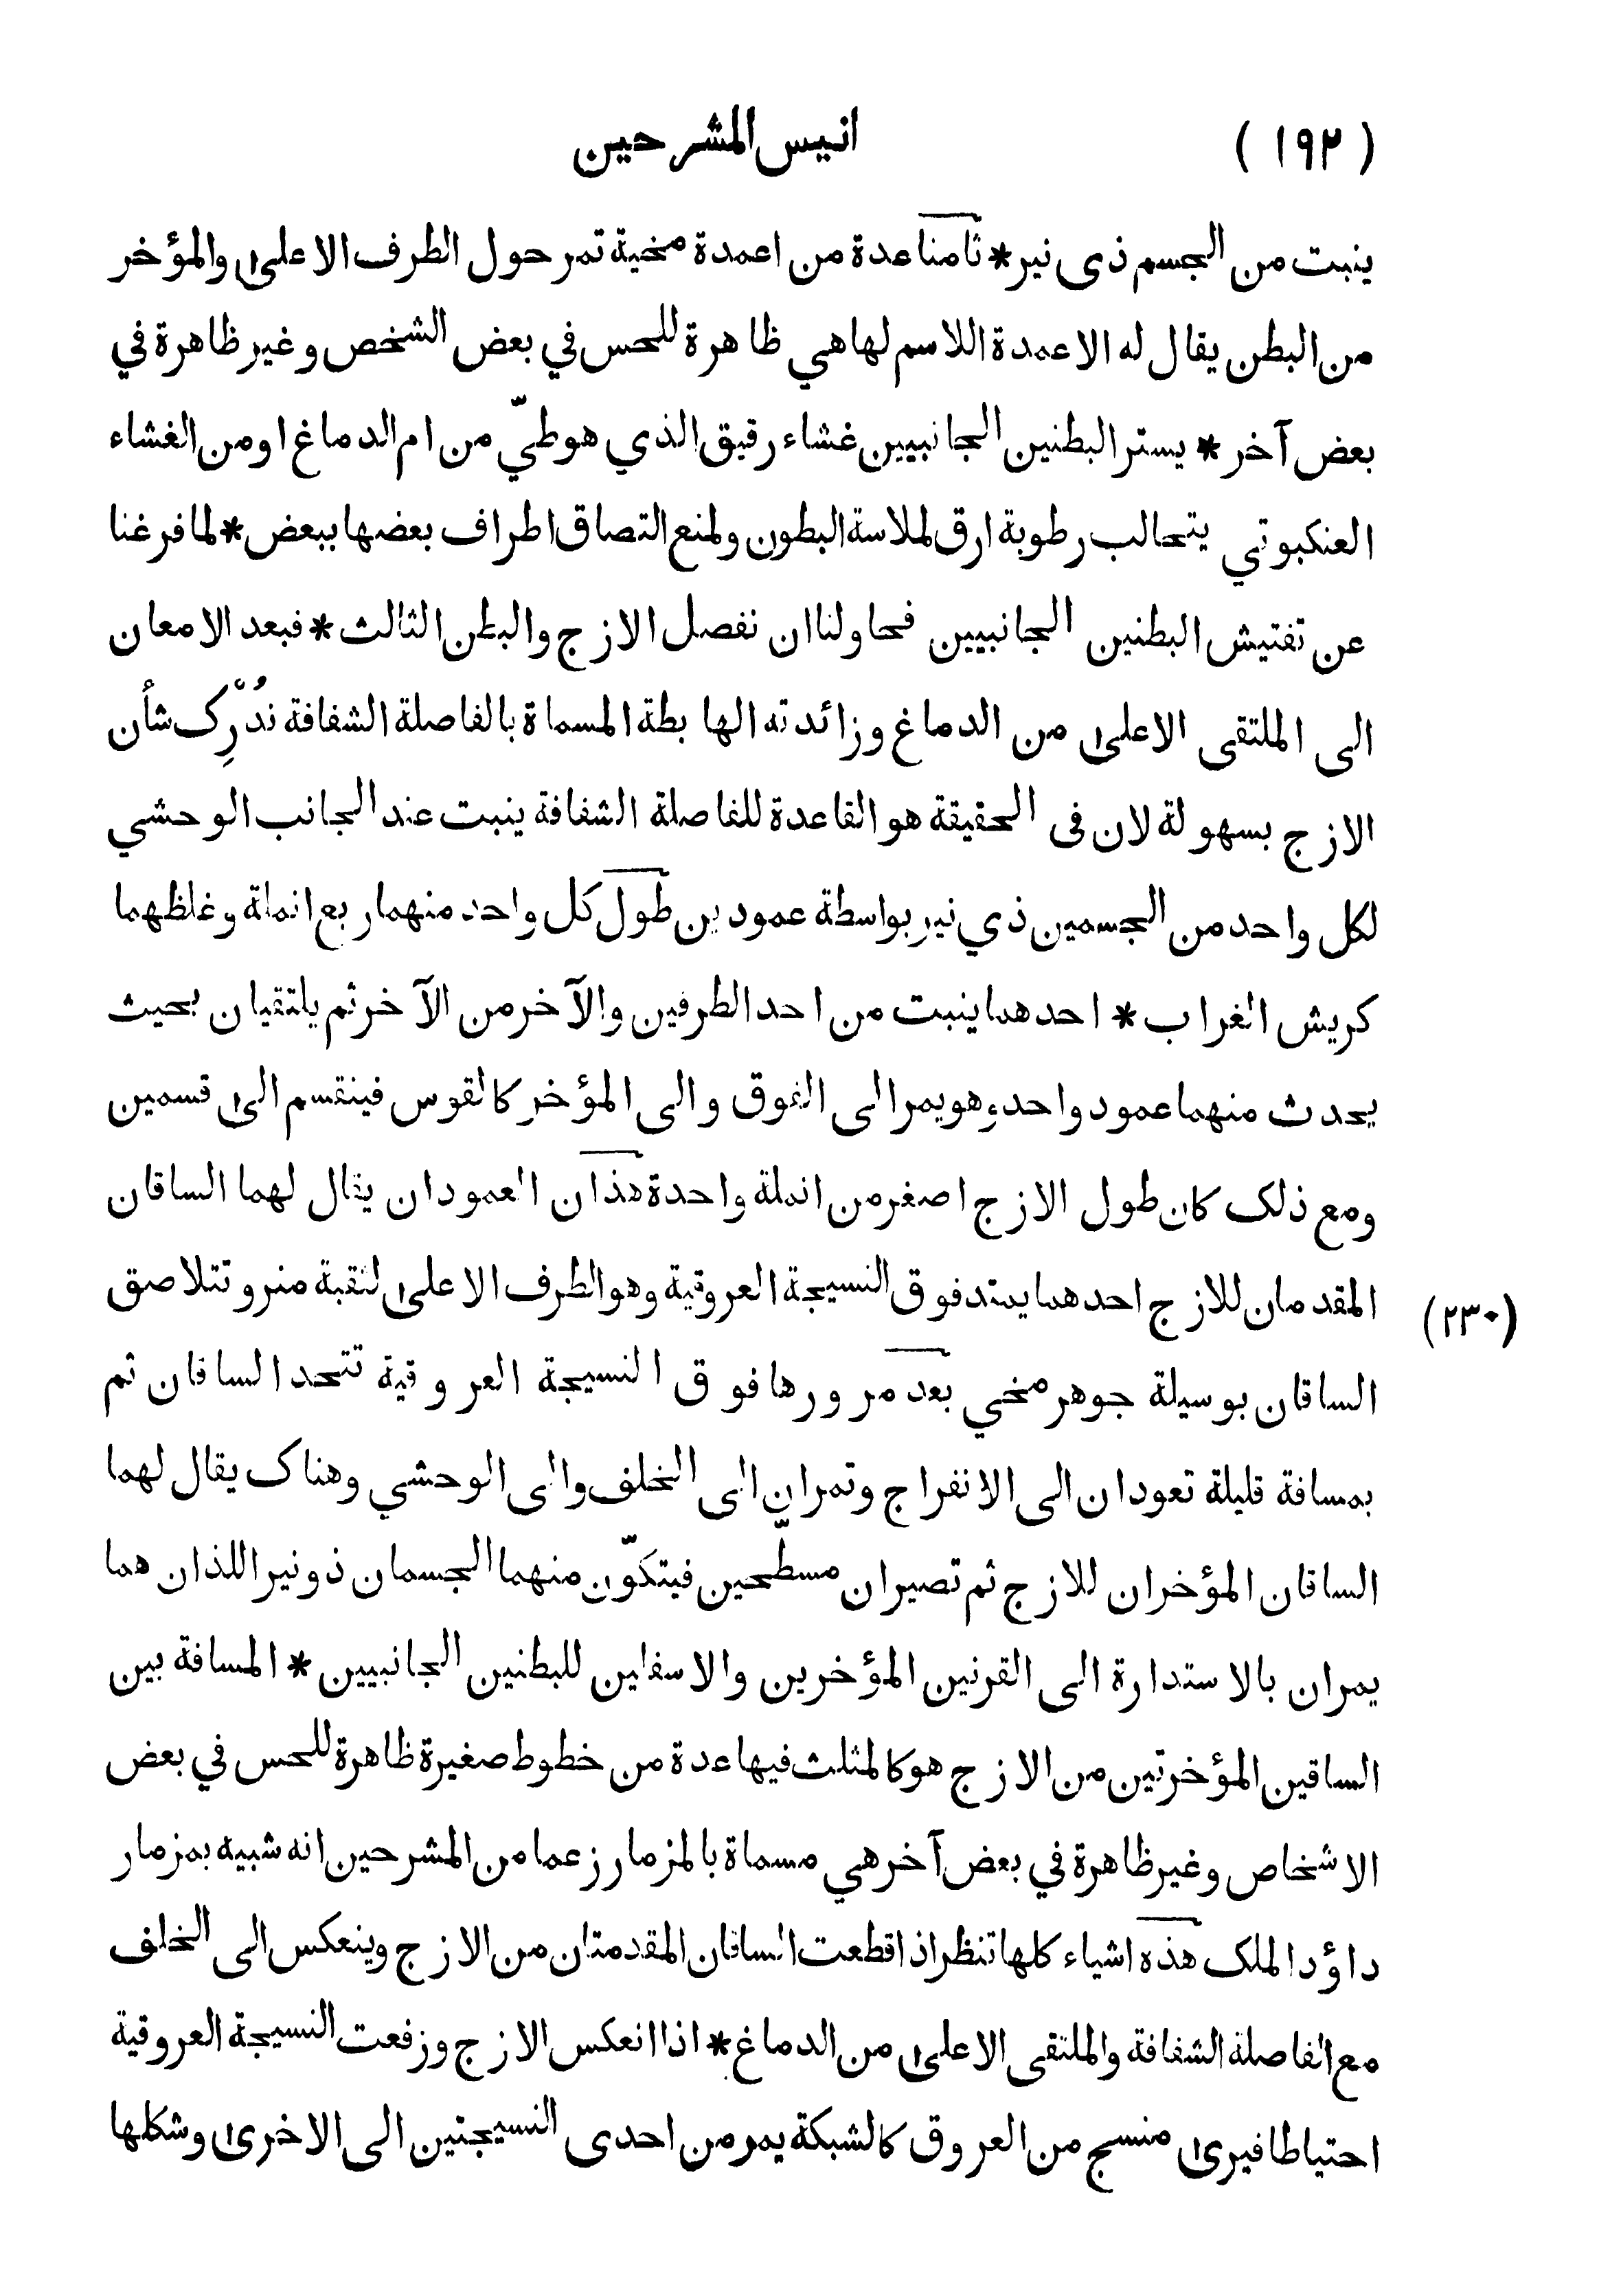 (١٩٢) انيس المشرحين
ينبت من الجسم ذى نير * ثامنا عدة من اعمدة مخية تمر حول الطرف الاعلىٰ والمؤخر
من البطن يقال له الاعمدة اللاسم لها هي ظاهرة للحس في بعض الشخص وغير ظاهرة في
بعض آخر * يستر البطنين الجانبيين غشاء رقيق الذي هو طيّ من ام الدماغ او من الغشاء
العنكبوتي يتحالب رطوبة ارق لملاسة البطون ولمنع التصاق اطراف بعضها ببعض * لما فرغنا
عن تفتيش البطنين الجانبيين فحاولنا ان نفصل الازج والبطن الثالث * فبعد الامعان
الى الملتقى الاعلىٰ من الدماغ وزائدته الهابطة المسماة بالفاصلة الشفافة نُدْرِك شأن
الازج بسهولة لان فى الحقيقة هو القاعدة للفاصلة الشفافة ينبت عند الجانب الوحشي
لكل واحد من الجسمين ذي نير بواسطة عمودين طول كل واحد منهما ربع انملة وغلظهما
كريش الغراب * احدهما ينبت من احد الطرفين والآخر من الآخر ثم يلتقيان بحيث
يحدث منهما عمود واحد وهو يمر الى الفوق والى المؤخر كالقوس فينقسم الىٰ قسمين
ومع ذلك كان طول الازج اصغر من انملة واحدة هذان العمودان يقال لهما الساقان
المقدمان للازج احدهما يمتد فوق النسيجة العروقية وهو الطرف الاعلىٰ لثقبة منرو تتلاصق
(٢٣٠)
الساقان بوسيلة جوهر مخي بعد مرورها فوق النسيجة العروقية تتحد الساقان ثم
بمسافة قليلة تعودان الى الانفراج وتمران الى الخلف والى الوحشي وهناك يقال لهما
الساقان المؤخران للازج ثم تصيران مسطّحين فيتكوّن منهما الجسمان ذو نير اللذان هما
يمران بالاستدارة الى القرنين المؤخرين والاسفلين للبطنين الجانبيين * المسافة بين
الساقين المؤخرتين من الازج هو كالمثلث فيها عدة من خطوط صغيرة ظاهرة للحس في بعض
الاشخاص وغير ظاهرة في بعض آخر هي مسماة بالمزمار زعما من المشرحين انه شبيه بمزمار
داؤد الملك هذه اشياء كلها تنظر اذا قطعت الساقان المقدمتان من الازج وينعكس الى الخلف
مع الفاصلة الشفافة والملتقى الاعلىٰ من الدماغ * اذا انعكس الازج وزفعت النسيجة العروقية
احتياطا فيرىٰ منسج من العروق كالشبكة يمر من احدى النسيجتين الى الاخرىٰ وشكلها